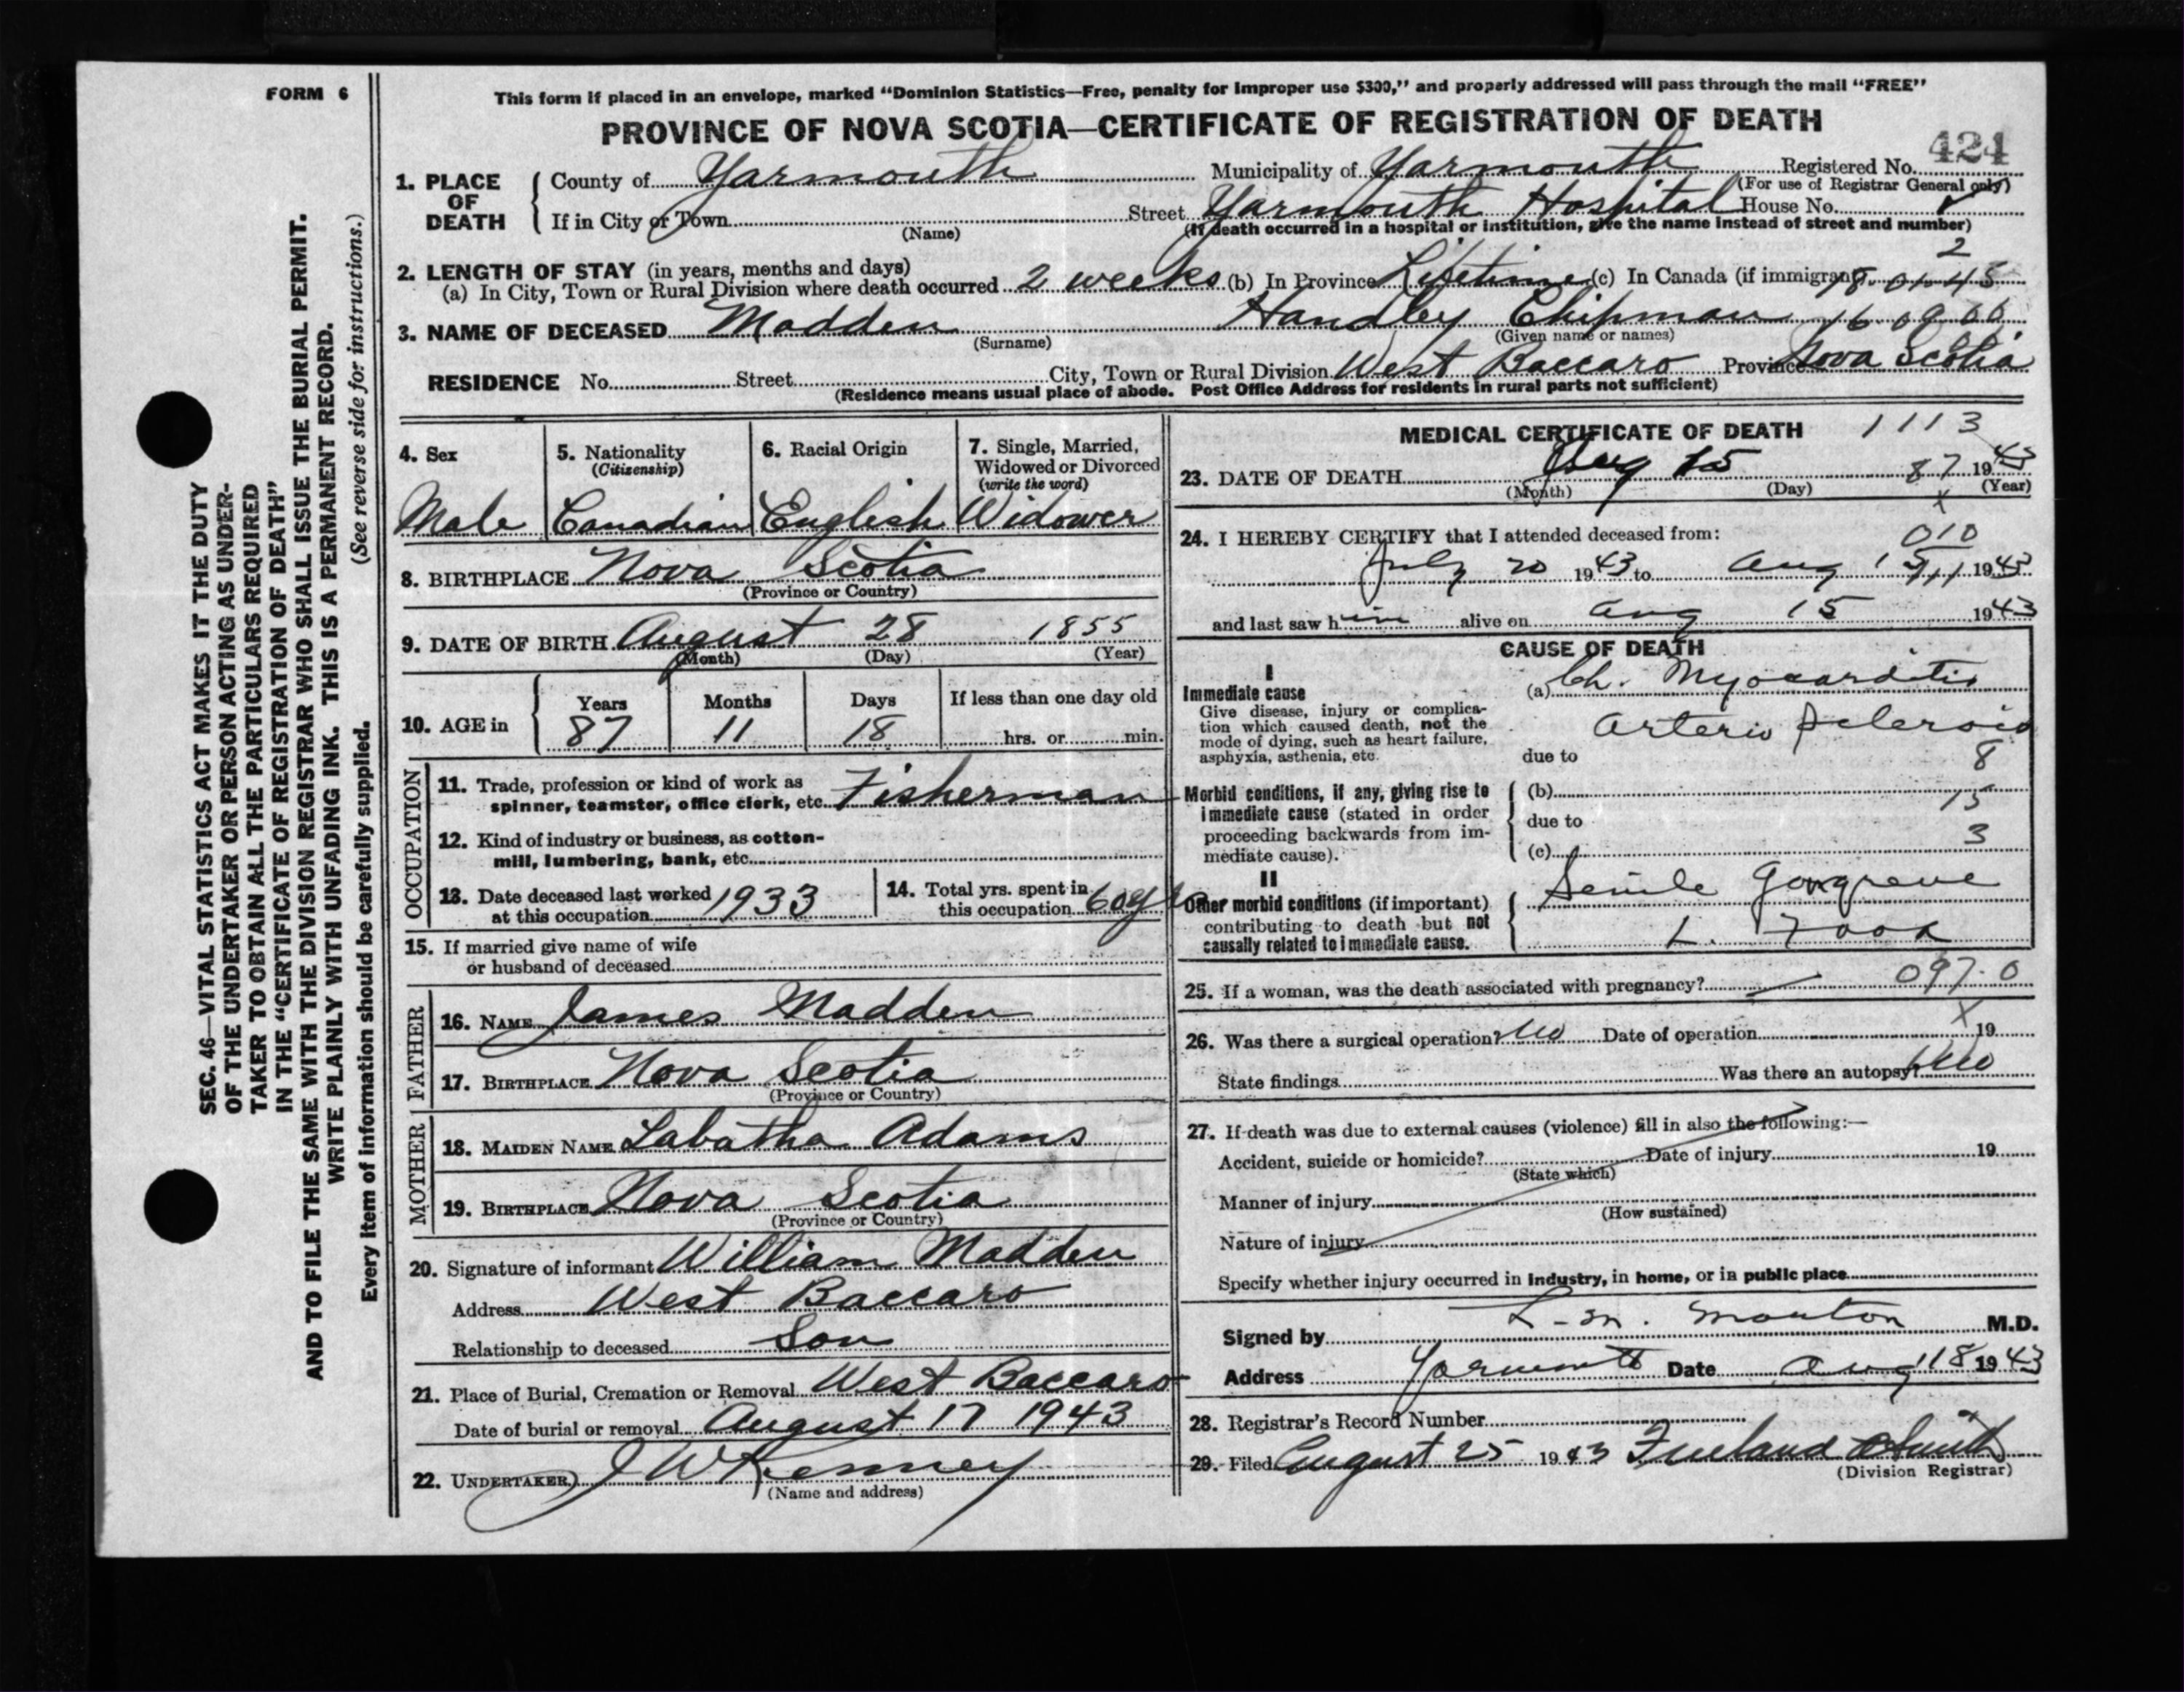 FORM 6
This form if placed in an envelope, marked “Dominion Statistics—Free, penalty for improper use $300,” and properly addressed will pass through the mail “FREE”
PROVINCE OF NOVA SCOTIA—CERTIFICATE OF REGISTRATION OF DEATH
424
1. PLACE OF DEATH
County of Yarmouth Municipality of Yarmouth Registered No.
(For use of Registrar General only)
If in City or Town Street Yarmouth Hospital House No.
(Name) (If death occurred in a hospital or institution, give the name instead of street and number)
2
2. LENGTH OF STAY (in years, months and days)
(a) In City, Town or Rural Division where death occurred 2 weeks (b) In Province Lifetime (c) In Canada (if immigrant)
3. NAME OF DECEASED Madden Handley Chipman 16 09 00
(Surname) (Given name or names)
RESIDENCE No. Street City, Town or Rural Division West Baccaro Province Nova Scotia
(Residence means usual place of abode. Post Office Address for residents in rural parts not sufficient)
4. Sex
Male
5. Nationality
(Citizenship)
Canadian
6. Racial Origin
English
7. Single, Married,
Widowed or Divorced
(write the word)
Widower
8. BIRTHPLACE Nova Scotia
(Province or Country)
9. DATE OF BIRTH August 28 1855
(Month) (Day) (Year)
10. AGE in
Years Months Days If less than one day old
87 11 18 hrs. or min.
OCCUPATION
11. Trade, profession or kind of work as
spinner, teamster, office clerk, etc. Fisherman
12. Kind of industry or business, as cotton-
mill, lumbering, bank, etc.
13. Date deceased last worked
at this occupation 1933
14. Total yrs. spent in
this occupation 60
15. If married give name of wife
or husband of deceased
FATHER
16. NAME James Madden
17. BIRTHPLACE Nova Scotia
(Province or Country)
MOTHER
18. MAIDEN NAME Labatha Adams
19. BIRTHPLACE Nova Scotia
(Province or Country)
20. Signature of informant William Madden
Address West Baccaro
Relationship to deceased Son
21. Place of Burial, Cremation or Removal West Baccaro
Date of burial or removal August 17 1943
22. UNDERTAKER J W Kenney
(Name and address)
MEDICAL CERTIFICATE OF DEATH 1113
23. DATE OF DEATH Aug 15 87 1943
(Month) (Day) (Year)
x
24. I HEREBY CERTIFY that I attended deceased from:
010
July 20 1943 to Aug 15 1943
and last saw him alive on Aug 15 1943
CAUSE OF DEATH
I
Immediate cause
Give disease, injury or complica-
tion which caused death, not the
mode of dying, such as heart failure,
asphyxia, asthenia, etc.
(a) Ch. Myocarditis
Arterio Sclerosis
due to
8
Morbid conditions, if any, giving rise to
immediate cause (stated in order
proceeding backwards from im-
mediate cause).
(b) 15
due to
(c) 3
II
Other morbid conditions (if important)
contributing to death but not
causally related to immediate cause.
Senile Gangrene
L. Foot
25. If a woman, was the death associated with pregnancy? 097.0
x
26. Was there a surgical operation? No Date of operation 19
State findings Was there an autopsy? No
27. If death was due to external causes (violence) fill in also the following:—
Accident, suicide or homicide? Date of injury 19
(State which)
Manner of injury
(How sustained)
Nature of injury
Specify whether injury occurred in industry, in home, or in public place
Signed by L. M. Morton M.D.
Address Yarmouth Date Aug 18 1943
28. Registrar's Record Number
29. Filed August 25 1943 Freeland Smith
(Division Registrar)
SEC. 46—VITAL STATISTICS ACT MAKES IT THE DUTY
OF THE UNDERTAKER OR PERSON ACTING AS UNDER-
TAKER TO OBTAIN ALL THE PARTICULARS REQUIRED
IN THE “CERTIFICATE OF REGISTRATION OF DEATH”
AND TO FILE THE SAME WITH THE DIVISION REGISTRAR WHO SHALL ISSUE THE BURIAL PERMIT.
WRITE PLAINLY WITH UNFADING INK. THIS IS A PERMANENT RECORD.
(See reverse side for instructions.)
Every item of information should be carefully supplied.